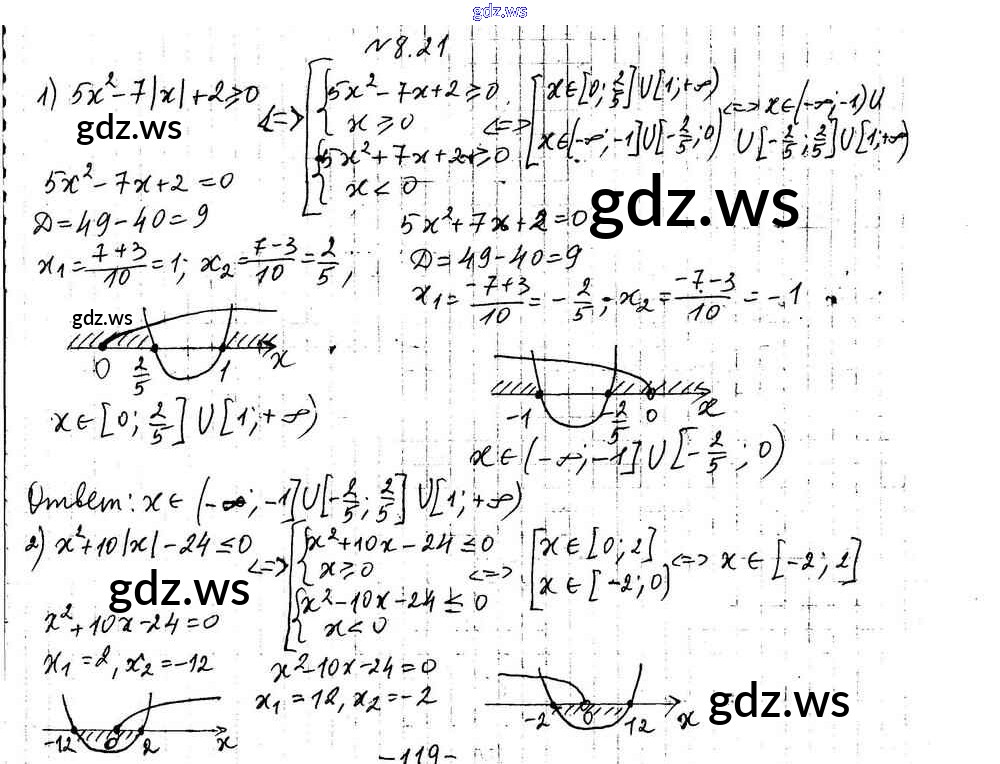 gdz.ws
№8.21
1) 5x²-7|x|+2≥0 <=> [ { 5x²-7x+2≥0, x≥0 { 5x²+7x+2≥0 x<0 <=> [ x∈[0; 2/5]∪[1;+∞) x∈(-∞;-1]∪[-2/5;0) <=> x∈(-∞;-1)∪
∪[-2/5; 2/5]∪[1;+∞)
gdz.ws
5x²-7x+2=0
D=49-40=9
x₁=(7+3)/10=1; x₂=(7-3)/10=2/5;
gdz.ws
5x²+7x+2=0
D=49-40=9
x₁=(-7+3)/10=-2/5; x₂=(-7-3)/10=-1
gdz.ws
0 2/5 1 x
x∈[0; 2/5]∪[1;+∞)
-1 -2/5 0 x
x∈(-∞;-1]∪[-2/5; 0)
Ответ: x∈(-∞;-1]∪[-2/5; 2/5]∪[1;+∞)
2) x²+10|x|-24≤0 <=> [ { x²+10x-24≤0 x≥0 { x²-10x-24≤0 x<0 <=> [ x∈[0;2] x∈[-2;0) <=> x∈[-2;2]
gdz.ws
x²+10x-24=0
x₁=2, x₂=-12
x²-10x-24=0
x₁=12, x₂=-2
-12 0 2 x
-2 0 12 x
gdz.ws
-119-